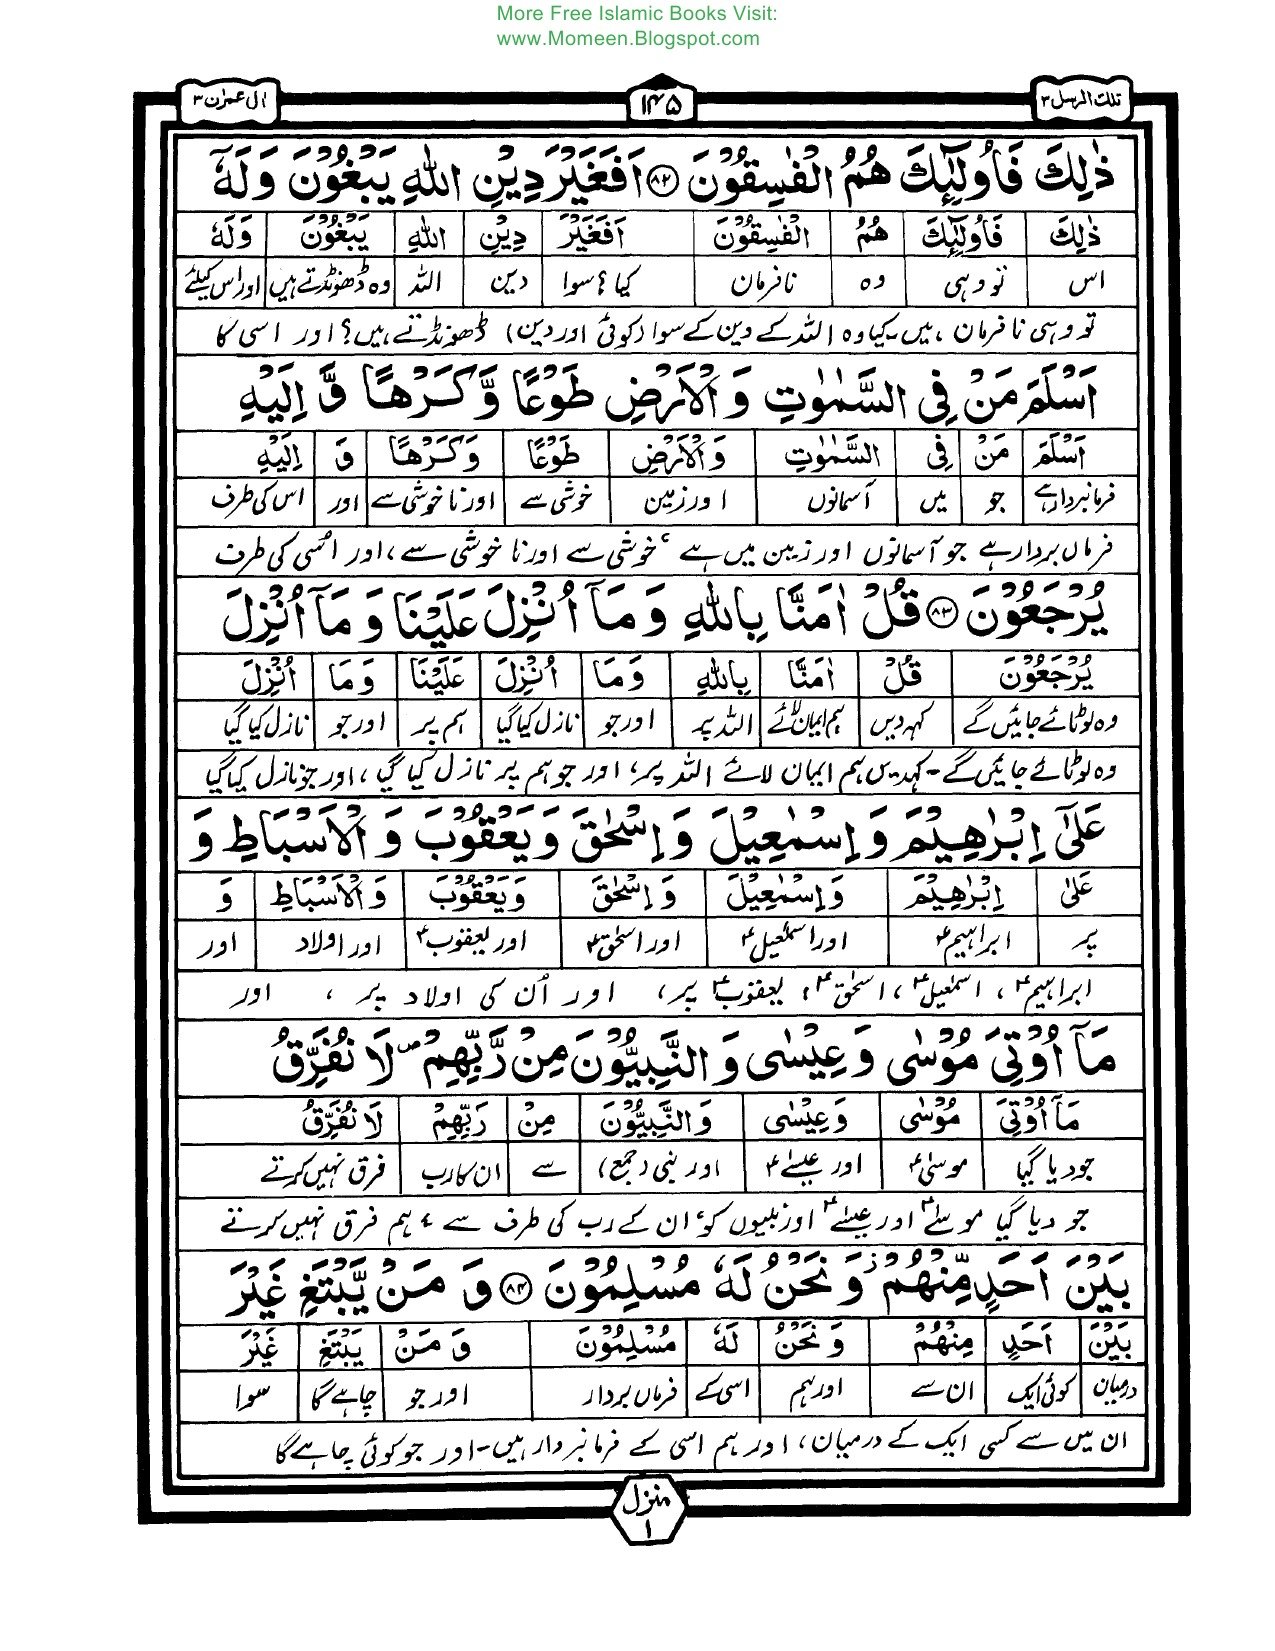 More Free Islamic Books Visit:
www.Momeen.Blogspot.com
اٰل عمرٰن ۳ ۱۴۵ تلك الرسل ۳
ذٰلِكَ فَاُولٰٓئِكَ هُمُ الْفٰسِقُوْنَ ﴿۸۲﴾ اَفَغَيْرَ دِيْنِ اللّٰهِ يَبْغُوْنَ وَلَهٗٓ
ذٰلِكَ فَاُولٰٓئِكَ هُمُ الْفٰسِقُوْنَ اَفَغَيْرَ دِيْنِ اللّٰهِ يَبْغُوْنَ وَلَهٗ
اس تو وہی وہ نافرمان کیا؟ سوا دین اللہ وہ ڈھونڈتے ہیں اور اس کیلئے
تو وہی نا فرمان ہیں۔ کیا وہ اللہ کے دین کے سوا (کوئی اور دین) ڈھونڈتے ہیں؟ اور اسی کا
اَسْلَمَ مَنْ فِى السَّمٰوٰتِ وَ الْاَرْضِ طَوْعًا وَّكَرْهًا وَّ اِلَيْهِ
اَسْلَمَ مَنْ فِى السَّمٰوٰتِ وَ الْاَرْضِ طَوْعًا وَّكَرْهًا وَ اِلَيْهِ
فرمانبردار ہے جو میں آسمانوں اور زمین خوشی سے اور نا خوشی سے اور اس کی طرف
فرماں بردار ہے جو آسمانوں اور زمین میں ہے ، خوشی سے اور نا خوشی سے، اور اُسی کی طرف
يُرْجَعُوْنَ ﴿۸۳﴾ قُلْ اٰمَنَّا بِاللّٰهِ وَ مَآ اُنْزِلَ عَلَيْنَا وَ مَآ اُنْزِلَ
يُرْجَعُوْنَ قُلْ اٰمَنَّا بِاللّٰهِ وَمَا اُنْزِلَ عَلَيْنَا وَمَا اُنْزِلَ
وہ لوٹائے جائیں گے کہہ دیں ہم ایمان لائے اللہ پر اور جو نازل کیا گیا ہم پر اور جو نازل کیا گیا
وہ لوٹائے جائیں گے۔ کہدیں ہم ایمان لائے اللہ پر، اور جو ہم پر نازل کیا گیا ، اور جو نازل کیا گیا
عَلٰٓى اِبْرٰهِيْمَ وَ اِسْمٰعِيْلَ وَ اِسْحٰقَ وَ يَعْقُوْبَ وَ الْاَسْبَاطِ وَ
عَلٰى اِبْرٰهِيْمَ وَ اِسْمٰعِيْلَ وَ اِسْحٰقَ وَ يَعْقُوْبَ وَ الْاَسْبَاطِ وَ
پر ابراہیمؑ اور اسمٰعیلؑ اور اسحٰقؑ اور یعقوبؑ اور اولاد اور
ابراہیمؑ ، اسمٰعیلؑ ، اسحٰقؑ ، یعقوبؑ پر، اور اُن کی اولاد پر ، اور
مَآ اُوْتِىَ مُوْسٰى وَ عِيْسٰى وَ النَّبِيُّوْنَ مِنْ رَّبِّهِمْ ۪ لَا نُفَرِّقُ
مَآ اُوْتِىَ مُوْسٰى وَ عِيْسٰى وَ النَّبِيُّوْنَ مِنْ رَبِّهِمْ لَا نُفَرِّقُ
جو دیا گیا موسیٰؑ اور عیسےٰؑ اور نبی (جمع) سے ان کا رب فرق نہیں کرتے
جو دیا گیا موسےٰؑ اور عیسےٰؑ اور نبیوں کو، ان کے رب کی طرف سے ، ہم فرق نہیں کرتے
بَيْنَ اَحَدٍ مِّنْهُمْ ۫ وَ نَحْنُ لَهٗ مُسْلِمُوْنَ ﴿۸۴﴾ وَ مَنْ يَّبْتَغِ غَيْرَ
بَيْنَ اَحَدٍ مِنْهُمْ وَ نَحْنُ لَهٗ مُسْلِمُوْنَ وَ مَنْ يَبْتَغِ غَيْرَ
درمیان کوئی ایک ان سے اور ہم اسی کے فرماں بردار اور جو چاہے گا سوا
ان میں سے کسی ایک کے درمیان، اور ہم اسی کے فرمانبردار ہیں۔ اور جو کوئی چاہے گا
منزل
۱